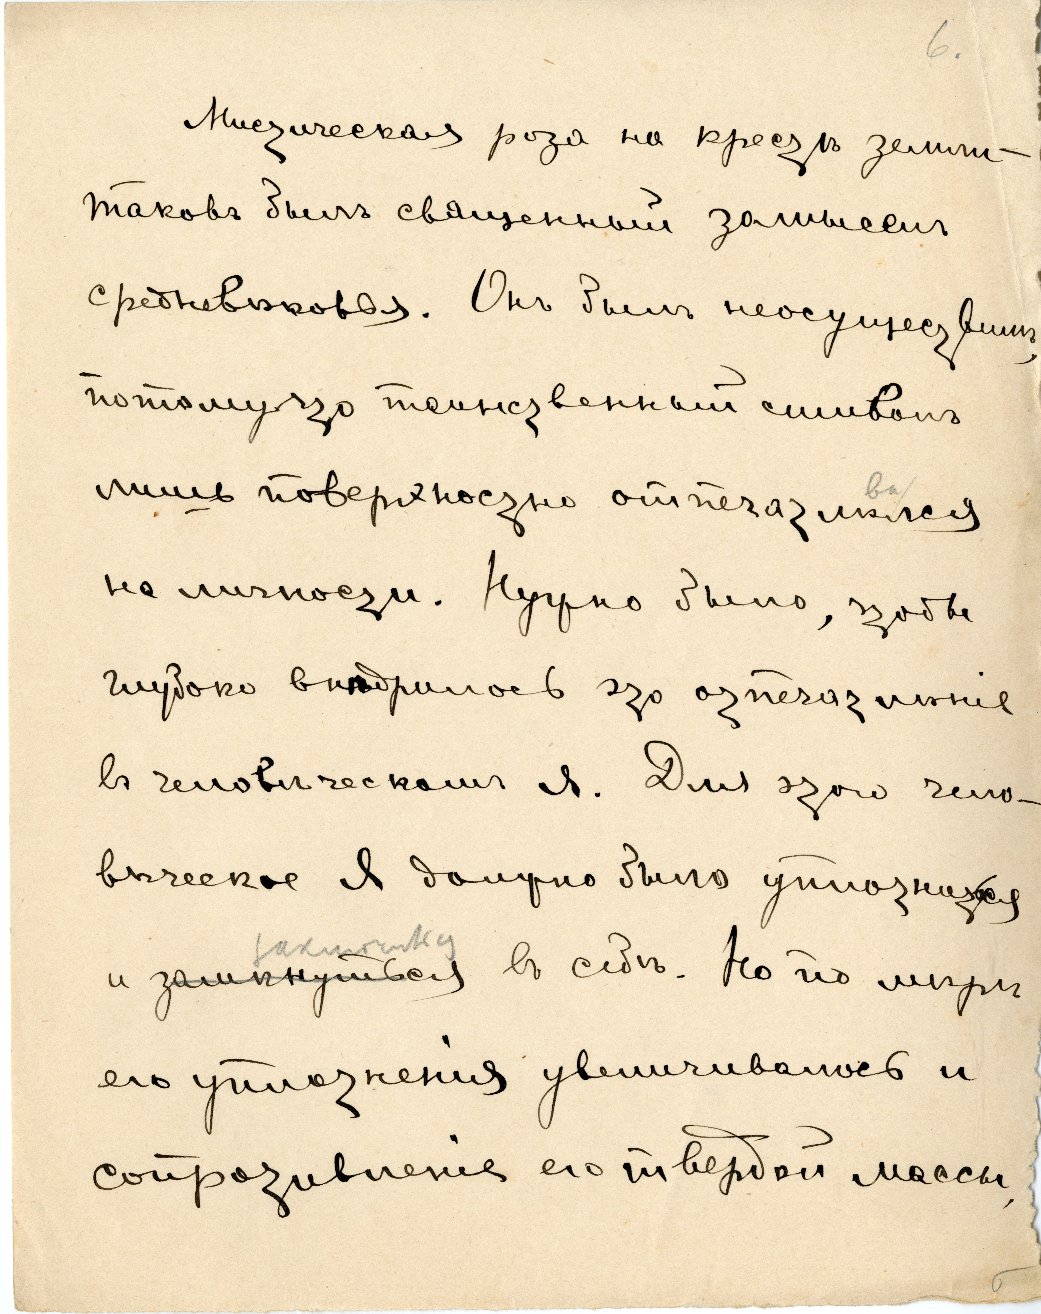 6.
Мистическая роза на крестѣ земли—
таковъ былъ священный замыселъ
средневѣковья. Онъ былъ неосуществимъ,
потому что таинственный символъ
ва/
лишь поверхностно отпечатлѣлся
на личности. Нужно было, чтобы
глубоко внѣдрилось это отпечатлѣніе
въ человѣческомъ я. Для этого чело-
вѣческое Я должно было уплотнятся
и замкнуться въ себѣ. Но по мѣрѣ
его уплотненія увеличивалось и
сопротивленіе его твердой массы,